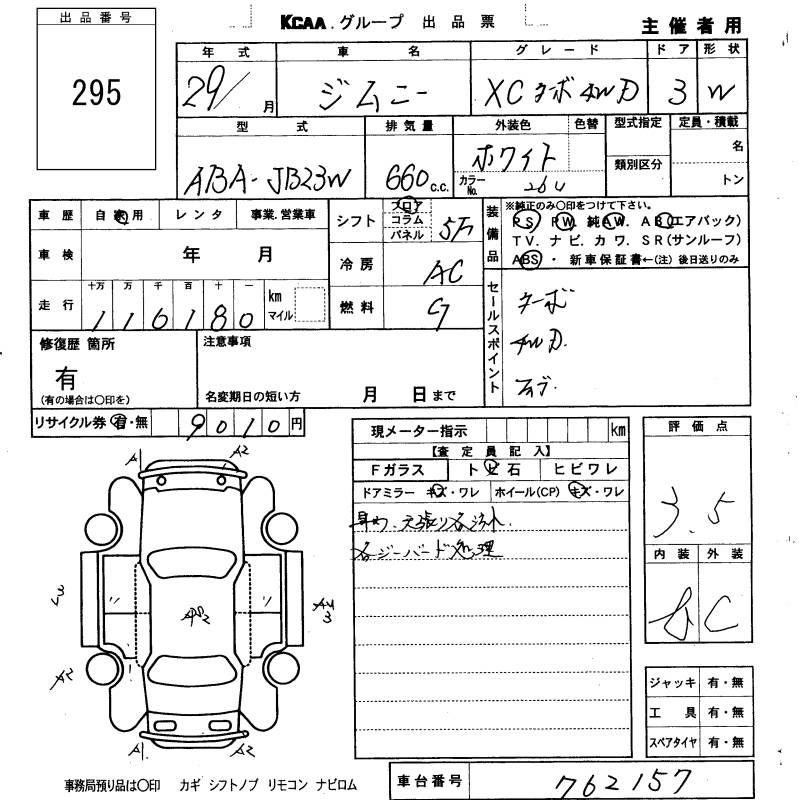 出品番号
295
KCAA.グループ 出品票
主催者用
年式 車名 グレード ドア 形状
29/ 月 ジムニー XC ターボ 4WD 3 W
型式 排気量 外装色 色替 型式指定 定員・積載
ABA-JB23W 660 c.c. ホワイト
カラーNo. 26U
類別区分
名
トン
車歴 自家用 レンタ 事業.営業車
車検 年 月
走行 十万 万 千 百 十 一
116180 km マイル
シフト フロア コラム パネル 5F
冷房 AC
燃料 G
装備品
※純正のみ〇印をつけて下さい。
PS. PW. 純AW. AB(エアバック)
TV. ナビ. カワ. SR(サンルーフ)
ABS・新車保証書←(注)後日送りのみ
セールスポイント
ターボ
4WD.
修復歴 箇所
有
(有の場合は〇印を)
注意事項
名変期日の短い方 月 日まで
リサイクル券 有・無 9010円
現メーター指示 km
【査定員記入】
Fガラス トビ石 ヒビワレ
ドアミラー キズ・ワレ ホイール(CP) キズ・ワレ
処理
評価点
3.5
内装 外装
C
ジャッキ 有・無
工具 有・無
スペアタイヤ 有・無
A1 A2
A2
A1 A2
事務局預り品は〇印 カギ シフトノブ リモコン ナビロム
車台番号 762157